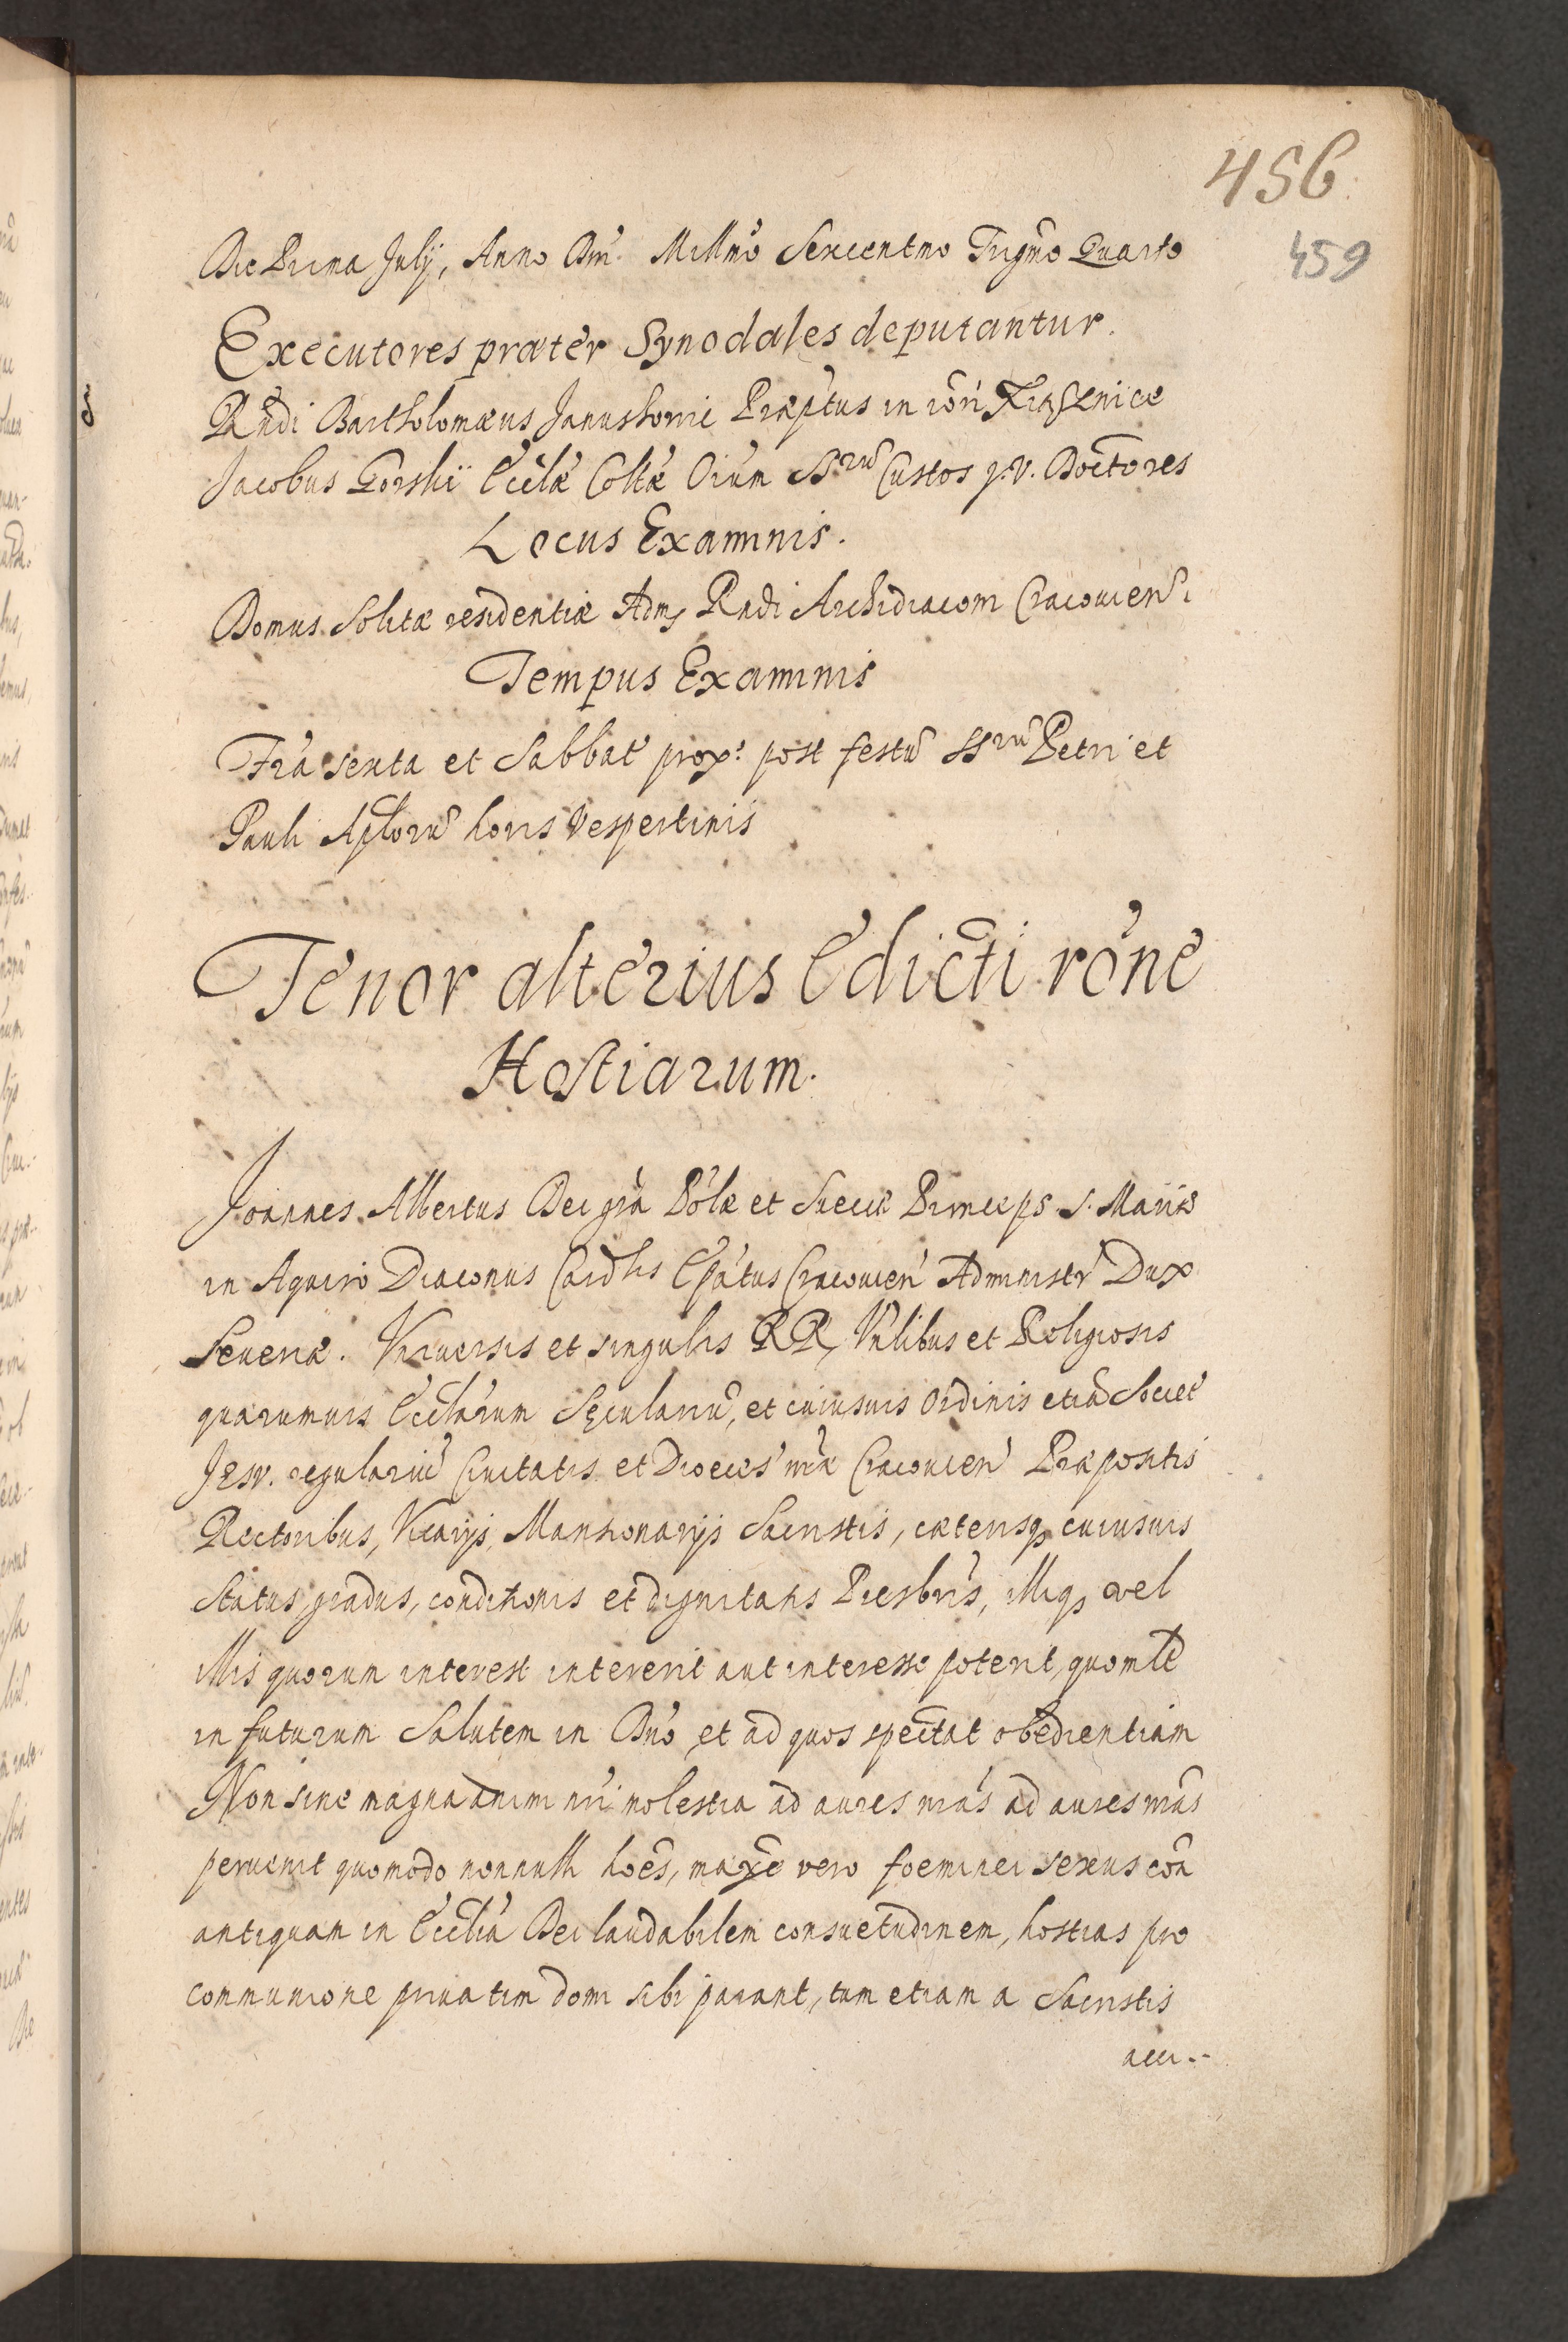 456
459
Die Prima Julij, Anno Dni Millmo Sexcentmo Trigmo Quarto
Executores præter Synodales deputantur.
Rndi Bartholomæus Januskowic Præptus in
Jacobus Gorskii Ecclæ Coltæ Oium SSrũ Custos J. V. Doctores
Locus Examinis.
Domus Solitæ residentiæ Adm Rndi Archidiaconi Cracouien̄
Tempus Examinis
Fria sexta et Sabbat̃ prox: post festũ SSrũ Petri et
Pauli Aplorũ horis Vespertinis
Tenor alterius Edicti rōne
Hostiarum.
Joannes Albertus Dei gr̃a Pol̃æ et Sueciæ Princeps S. Mariæ
in Aquiro Diaconus Cardlis Ep̃atus Cracouien̄ Administr̃ Dux
Seueriæ. Vniuersis et singulis RR, Vnlibus et Religiosis
quarumuis Eccl̃arum Sęculariũ, et cuiusuis Ordinis etiã Societ̃
Jesu. regulariũ Ciuitatis et Dioeces̃ nr̃æ Cracouien̄ Præpositis
Rectoribus, Vicarijs, Mansionarijs Sacristis, cæterisq3 cuiusuis
Status, gradus, conditionis et dignitatis Presbris̃, illiq3 vel
illis quorum interest intererit aut interesse poterit, quomlt̃
in futurum Salutem in Dno, et ad quos spectat obedientiam
Non sine magna animi nr̃i molestia ad aures nr̃as ad aures nr̃as
peruenit quomodo nonnulli hoẽs, maxẽ vero foeminei sexus con̄a
antiquam in Ecclia Dei laudabilem consuetudinem, hostias pro
communione priuatim domi sibi parant, tum etiam a Sacristis
acci..